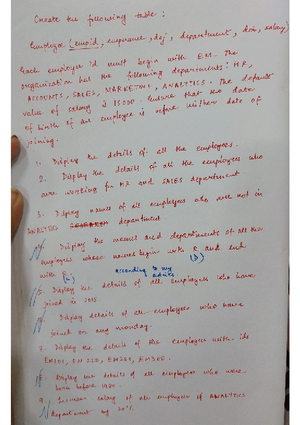 Create the following table :
Employee (empid, empname, doj, department, dob, salary)
Each employee id must begin with EM. The
organisation has the following departments: HR,
ACCOUNTS, SALES, MARKETING, ANALYTICS. The default
value of salary is 15000. Ensure that the date
of birth of an employee is before his/her date of
joining.
1. Display the details of all the employees.
2. Display the details of all the employees who
are working in HR and SALES department
3. Display names of all employees who are not in
ANALYTICS department
Display the names and departments of all the
employees whose names begin with R and end
with
(D)
(C)
according to my
Display the details of all employees who have
joined in
Display details of all employees who have
joined on any monday.
Display the details of the employees with ids
EM101,
8. Display the details of all employees who were
born before
9. Increase salary of all employees of ANALYTICS
department by 20%